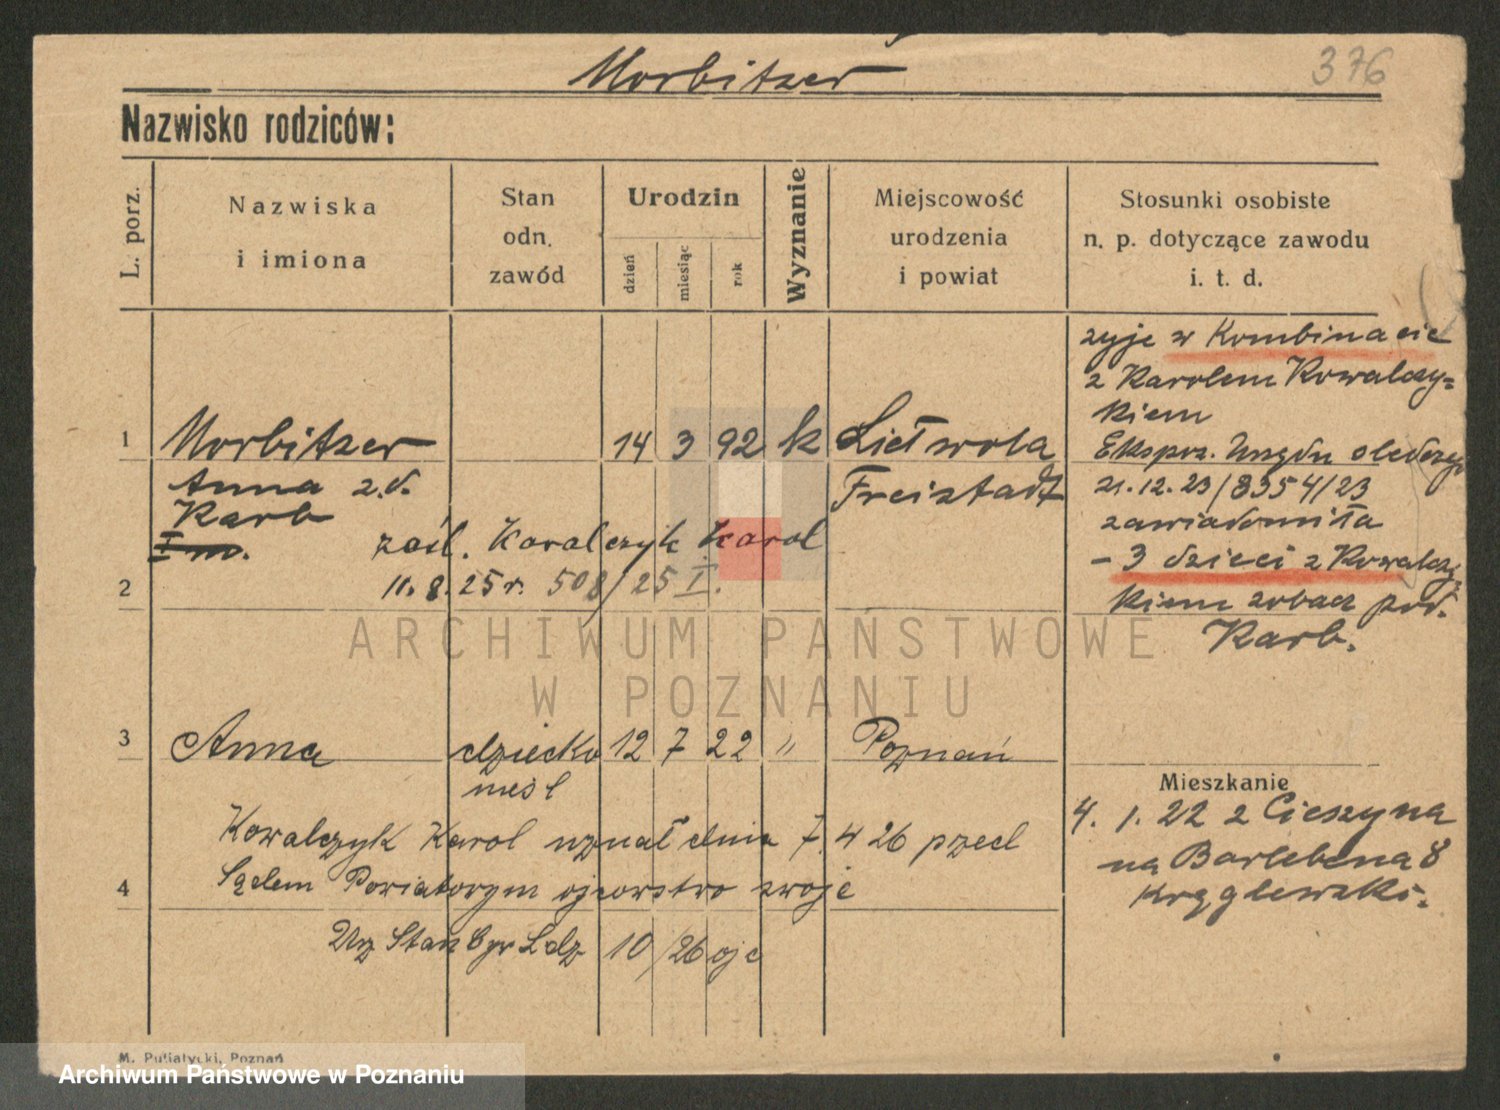 Morbitzer
376
Nazwisko rodziców:
L. porz.
Nazwiska
i imiona
Stan
odn.
zawód
Urodzin
dzień
miesiąc
rok
Wyznanie
Miejscowość
urodzenia
i powiat
Stosunki osobiste
n. p. dotyczące zawodu
i. t. d.
żyje w Kombinacie
z Karolem Kowalczy=
kiem
1 Morbitzer 14 3 92 k Lietwola
Ekspoz. Urzędu śledczego
Anna z.d. Freistadt
21.12.23/8354/23
Karb
zawiadomiła
I m. zaśl. Kowalczyk Karol
- 3 dzieci z Kowalczy-
2 11.8.25 r. 508/25 I.
kiem zobacz pod.
Karb.
ARCHIWUM PAŃSTWOWE
W POZNANIU
3 Anna dziecko 12 7 22 " Poznań
nieśl
Mieszkanie
4. 1. 22 z Cieszyna
na Barlebena 8
Kręglewski.
Kowalczyk Karol uznał dnia 7. 4 26 przed
4 Sądem Powiatowym ojcowstwo swoje
Urz Stan Cyw Ldz 10/26 ojc
M. Putiatycki, Poznań
Archiwum Państwowe w Poznaniu